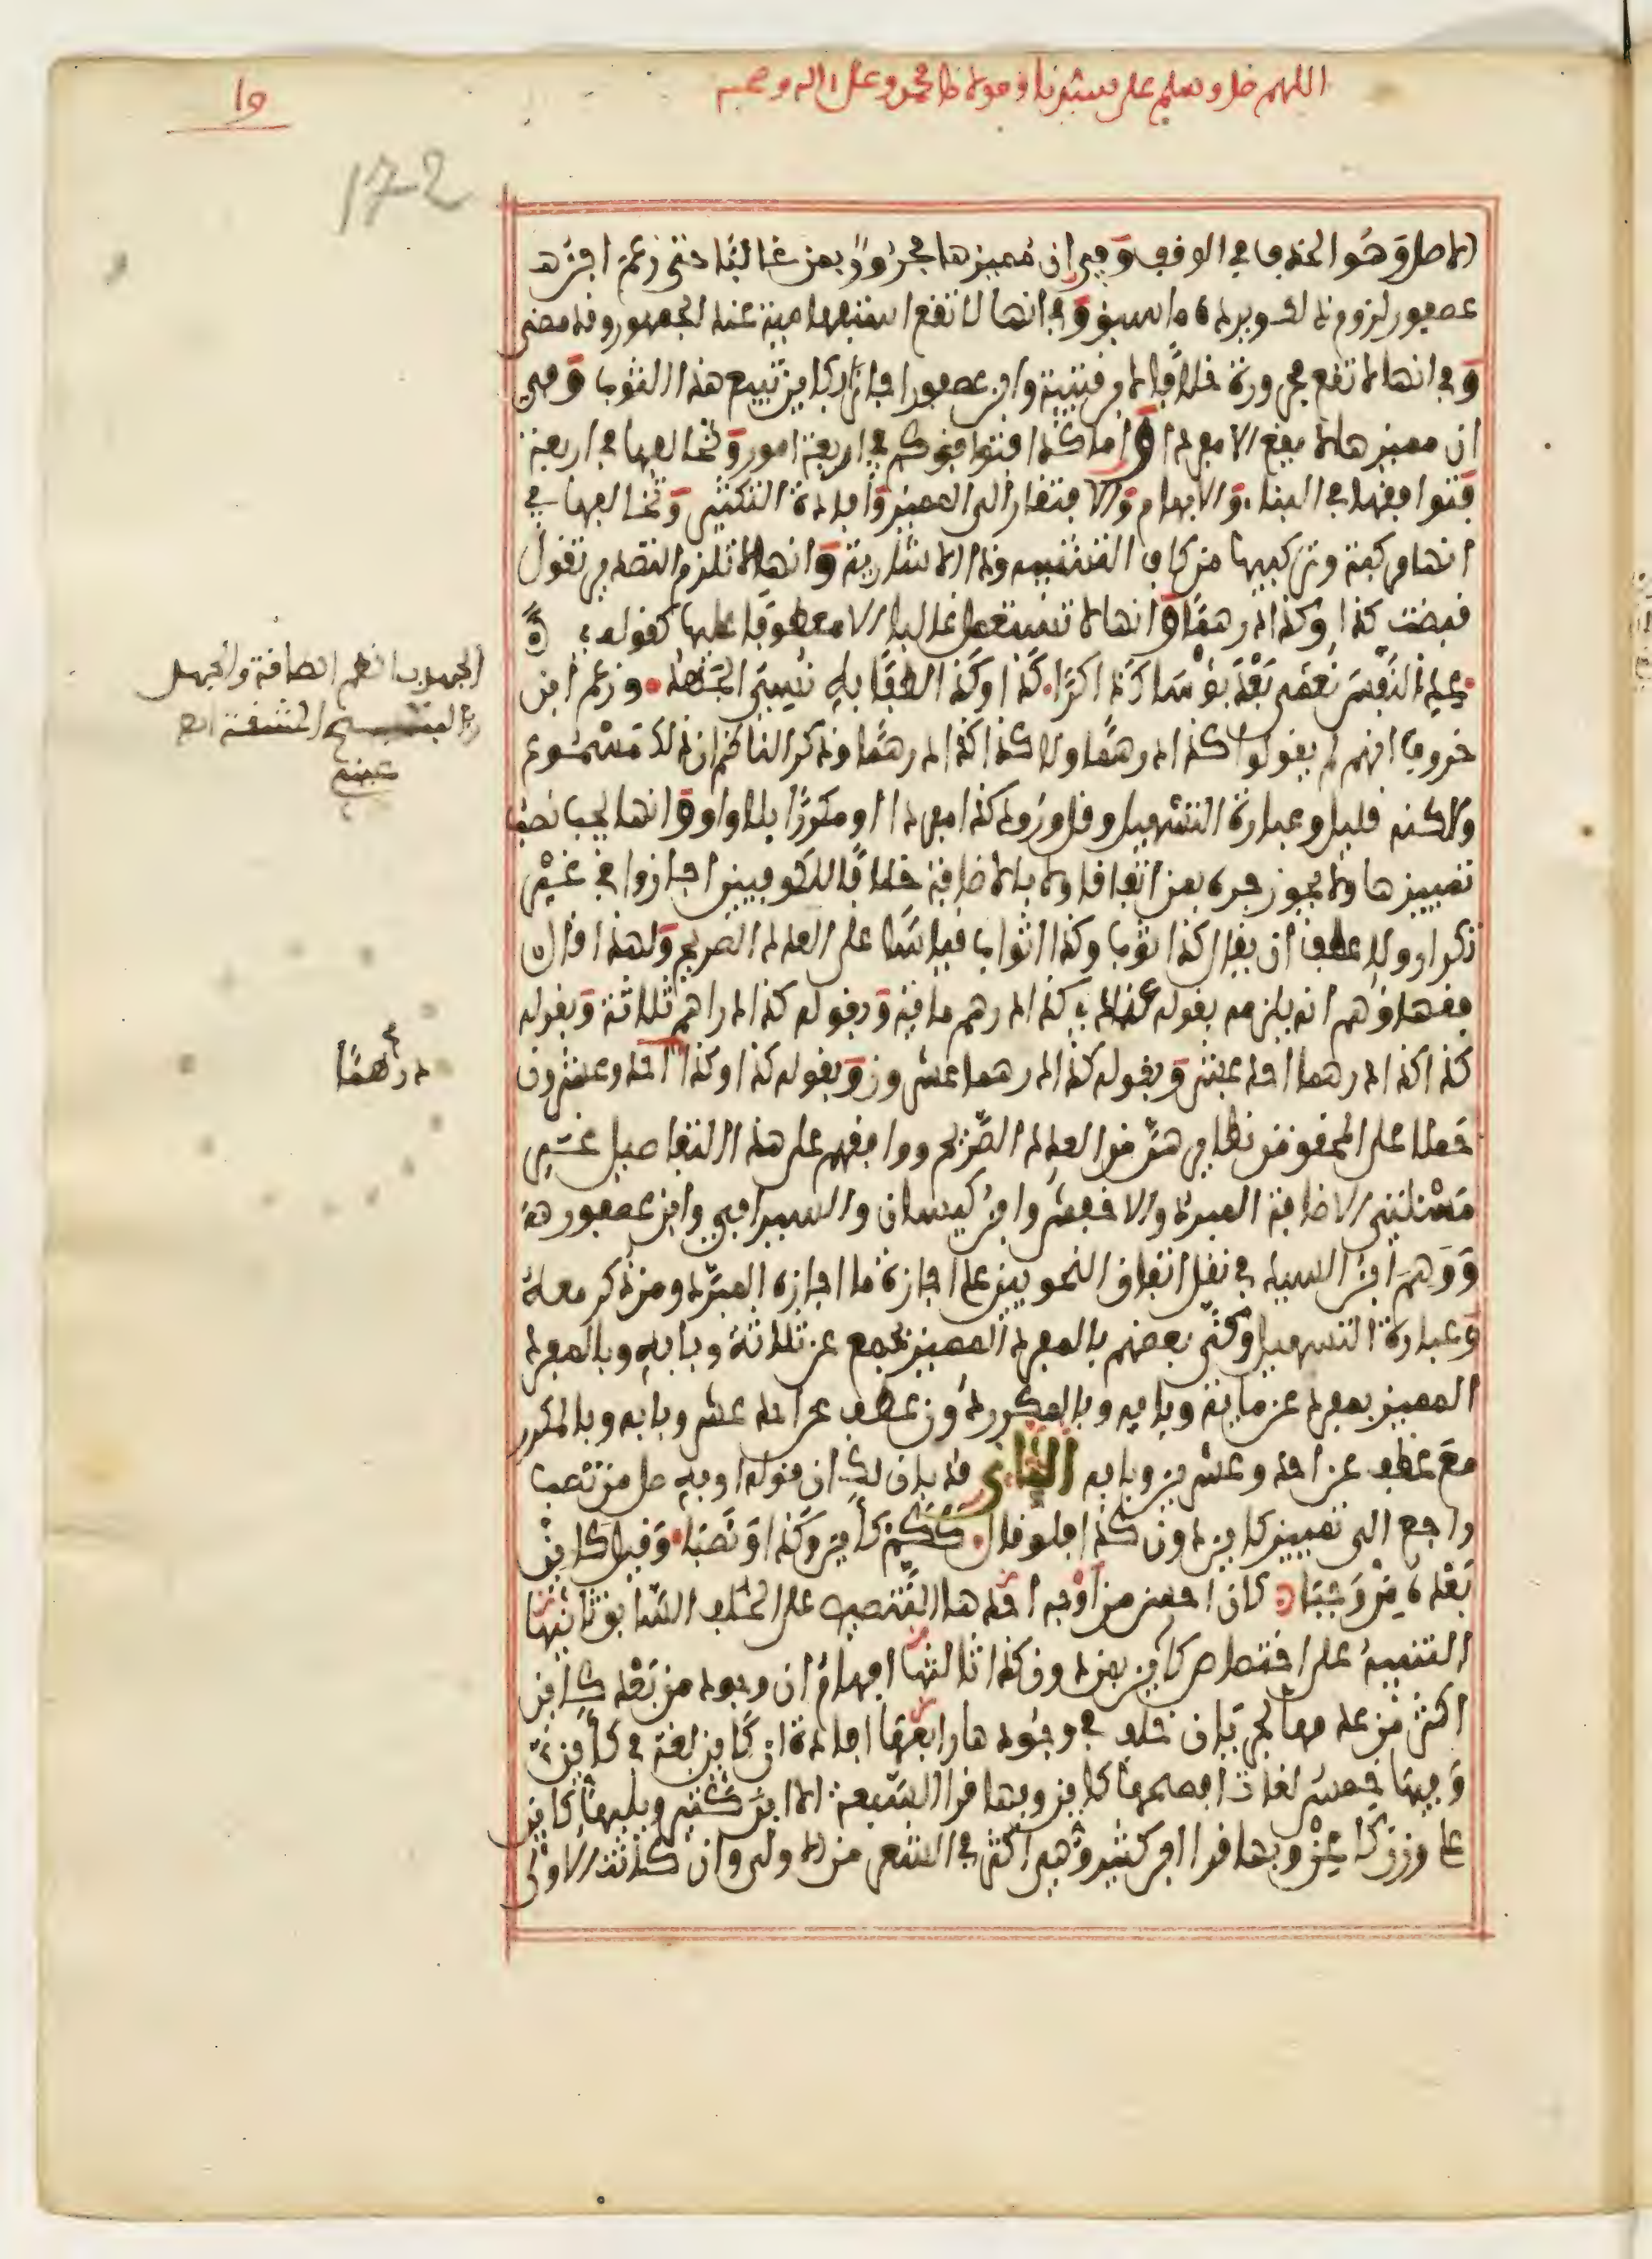 اللهم صل وسلم على سيدنا ومولانا محمد وعلى اله وصحبه
172
الاصل وهو الحذف في الوقف وفي ان مميزها مجرور بمن غالبا حتى زعم ابن
عصفور لزوم ذلك ويرده ما سبق وفي انها لا تقع استفهامية عند الجمهور وقد مضى
وفي انها لا تقع مجرورة خلافا لابن قتيبة وابن عصفور اجازا بكاين تبيع هذا الثوب وفي
ان مميزها لا يقع الا مفردا واما كذا فتوافق كم في اربعة امور وتخالفها في اربعة
فتوافقها في البناء والابهام والافتقار الى المميز وافادة التكثير وتخالفها في
انها مركبة وتركيبها من كاف التشبيه وذا الاشارية وانها لا تلزم التصدير تقول
قبضت كذا وكذا درهما وانها لا تستعمل غالبا الا معطوفا عليها كقوله
عد النفس نعمى بعد بؤساك ذاكرا كذا وكذا لطفا به نسي الجهد وزعم ابن
خروف انهم لم يقولوا كذا درهما ولا كذا كذا درهما وذكر الناظم ان ذلك مسموع
ولاكنه قليل وعبارة التسهيل وقل ورود كذا مفردا او مكررا بلا واو وانها يجب نصب
تمييزها ولا يجوز جره بمن اتفاقا ولا بالاضافة خلافا للكوفيين اجازوا في غير
تكرار ولا عطف ان يقال كذا ثوب وكذا اثواب قياسا على العدد الصريح ولهذا قال
فقهاؤهم انه يلزمه بقوله عندي كذا درهم مائة وبقوله كذا دراهم ثلاثة وبقوله
كذا كذا درهما احد عشر وبقوله كذا درهما عشرون وبقوله كذا وكذا احد وعشرون
حملا على المحقق من نظايرهن من العدد الصريح ووافقهم على هذا التفاصيل غير
مسئلتي الاضافة المبرد والاخفش وابن كيسان والسيرافي وابن عصفور
ووهم ابن السيد في نقل اتفاق النحويين على اجازة ما اجازه المبرد ومن ذكر معه
وعبارة التسهيل وكنى بعضهم بالمفرد المميز بجمع عن ثلاثة وبابه وبالمفرد
المميز بمفرد عن مائة وبابه وبالمكرر دون عطف عن احد عشر وبابه وبالمكرر
مع عطف عن احد وعشرين وبابه الثاني قد بان لك ان قوله او به صل من تصب
راجع الى تمييز كاين دون كذا فلو قال ككم كأين وكذا ونصبا وقيل كاين
بعده من وجبا كان احسن من اوجه احدها التنصيص على الخلاف السابق ثانيها
التنبيه على اختصاص كاين بمن دون كذا ثالثها افهام ان وجود من بعد كاين
اكثر من عدمها لجريان خلف في وجودها رابعها افادة ان كاين لغة في كأين
وفيها خمس لغات افصحها كاين وبها قرا السبعة الا ابن كثير ويليها كاين
على وزن كاعن وبها قرا ابن كثير وهي اكثر في الشعر من الاولى وان كانت الاولى
درهما